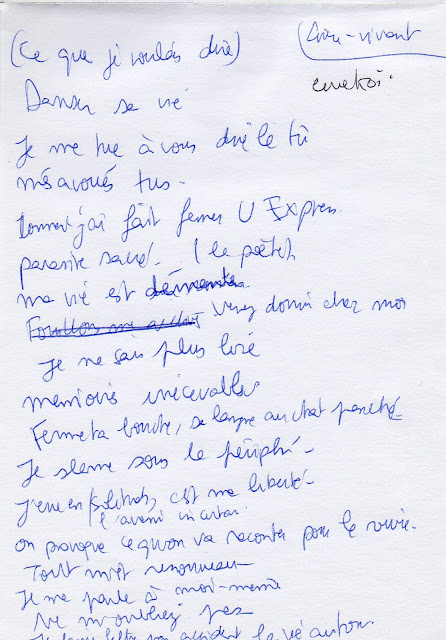 (Ce que je voulais dire)
(Livre-vivant
Danser sa vie
Je me tue à vous dire le tu
m'es avoués tus -
Comment j'ai fait fermer U Express.
parasite sacré. (le poète)
ma vie est démente
venez dormir chez moi
Je ne sais plus lire
memoires irrécevables
Ferme ta bouche, sa langue au chat penché
Je slame sous le périph -
J'erre en solitude, c'est ma liberté -
l'avenir incertain
on provoque ce qu'on va raconter pour le vivre.
Tout mot renouveau
Je me parle à moi-meme
Ne m'oubliez pas